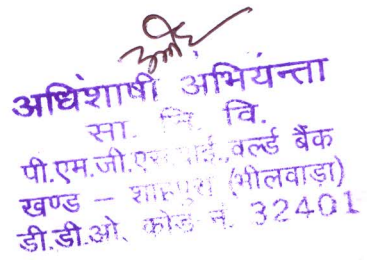 अधिशाषी अभियन्ता
सा. नि. वि.
पी.एम.जी.एस.वाई.,वर्ल्ड बैंक
खण्ड – शाहपुरा (भीलवाड़ा)
डी.डी.ओ. कोड नं. 32401